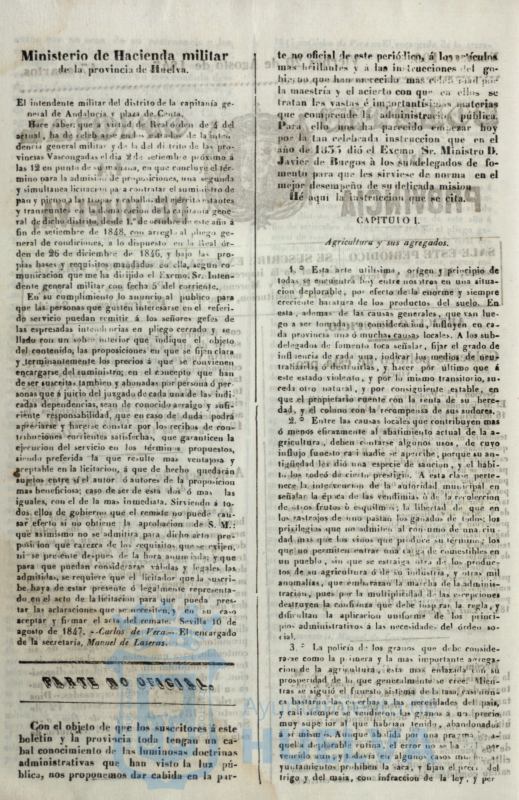 Ministerio de Hacienda militar
de la provincia de Huelva.
El intendente militar del distrito de la capitanía ge-
neral de Andalucía y plaza de Ceuta.
Hace saber: que á virtud de Real orden de 4 del
actual, ha de celebrarse en los estrados de la inten-
dencia general militar y de la del distrito de las pro-
vincias Vascongadas el dia 2 de setiembre próximo á
las 12 en punto de su mañana, en que concluye el tér-
mino para la admision de proposiciones, una segunda
y simultanea licitacion para contratar el suministro de
pan y pienso á las tropas y caballos del ejército estantes
y transeuntes en la demarcacion de la capitanía gene-
ral de dicho distrito, desde 1.º de octubre de este año á
fin de setiembre de 1848, con arreglo al pliego ge-
neral de condiciones, á lo dispuesto en la Real ór-
den de 26 de diciembre de 1846, y bajo las pro-
pias bases y requisitos mandados en ella, segun co-
municacion que me ha dirijido el Exemo. Sr. Inten-
dente general militar con fecha 5 del corriente.
En su cumplimiento lo anuncio al público para
que las personas que gusten interesarse en el referi-
do servicio puedan remitir á los señores gefes de
las espresadas intendencias en pliego cerrado y se-
llado con un sobre interior que indique el objeto
del contenido, las proposiciones en que se fijen clara
y terminantemente los precios á que se convienen
encargarse del suministro; en el concepto que han
de ser suscritas tambien y abonadas por persona ó per-
sonas que á juicio del juzgado de cada una de las indi-
cadas dependencias, sean de conocido arraigo y sufi-
ciente responsabilidad, que en caso de duda podrá
apreciarse y hacerse constar por los recibos de con-
tribuciones corrientes satisfechas, que garanticen la
ejecucion del servicio en los términos propuestos,
siendo preferida la que resulte mas ventajosa y
aceptable en la licitacion, á que de hecho quedarán
sujetos entre sí el autor ó autores de la proposicion
mas beneficiosa; caso de ser de esta dos ó mas las
iguales, con el de la mas inmediata. Sirviendo á to-
dos ellos de gobierno que el remate no puede cau-
sar efecto si no obtiene la aprobacion de S. M.:
que asimismo no se admitira para dicho acto pro-
posicion que carezca de los requisitos que se exijen,
ni se presente despues de la hora anunciada; y que
para que puedan considerarse válidas y legales las
admitidas, se requiere que el licitador que la suscri-
be haya de estar presente ó legalmente representa-
do en el acto de la licitacion para que pueda pres-
tar las aclaraciones que se necesiten, y en su caso
aceptar y firmar el acta del remate. Sevilla 10 de
agosto de 1847.—Carlos de Vera.—El encargado
de la secretaría, Manuel de Laseras.
PARTE NO OFICIAL.
Con el objeto de que los suscritores á este
boletin y la provincia toda tengan un ca-
bal conocimiento de las luminosas doctrinas
administrativas que han visto la luz pú-
blica, nos proponemos dar cabida en la par-
te no oficial de este periódico, á los artículos
mas brillantes y á las instrucciones del go-
bierno que han merecido mas celebridad por
la maestría y el acierto con que en ellos se
tratan las vastas é importantísimas materias
que comprende la administracion pública.
Para ello nos ha parecido empezar hoy
por la tan celebrada instruccion que en el
año de 1833 dió el Excmo. Sr. Ministro D.
Javier de Burgos á los subdelegados de fo-
mento para que les sirviese de norma en el
mejor desempeño de su delicada mision
Hé aquí la instruccion que se cita.
CAPITULO I.
Agricultura y sus agregados.
1.º Esta arte utilísima, orígen y principio de
todas se encuentra hoy entre nosotros en una situa-
cion deplorable, por efecto de la enorme y siempre
creciente baratura de los productos del suelo. En
esta, ademas de las causas generales, que van lue-
go á ser tomadas en consideracion, influyen en ca-
da provincia una ó muchas causas locales. A los sub-
delegados de fomento toca señalar, fijar el grado de
influencia de cada una, indicar los medios de neu-
tralizarlas ó destruirlas, y hacer por último que á
este estado violento, y por lo mismo transitorio, su-
ceda otro natural, y por consiguiente estable, en
que el propietario cuente con la renta de su here-
dad, y el colono con la recompensa de sus sudores.
2.º Entre las causas locales que contribuyen mas
ó menos eficazmente al abatimiento actual de la a-
gricultura, deben contarse algunos usos, de cuyo
influjo funesto casi nadie se apercibe, porque su an-
tigüedad les dió una especie de sancion, y el hábi-
to los rodeó de cierto prestigio. A esta clase perte-
nece la intervencion de la autoridad municipal en
señalar la época de las vendimias ó de la recoleccion
de otros frutos ó esquilmos; la libertad de que en
los rastrojos de uno pastan los ganados de todos; los
privilegios que no admiten al consumo de una ciu-
dad mas que los vinos que produce su término; los
que no permiten entrar una carga de comestibles en
un pueblo, sin que se estraiga otra de los produc-
tos de su agricultura ó de su industria, y otras mil
anomalías, que embarazan la marcha de la adminis-
tracion, pues por la multiplicidad de las escepciones
destruyen la confianza que debe inspirar la regla, y
dificultan la aplicacion uniforme de los princi-
pios administrativos á las necesidades del órden so-
cial.
3.º La policía de los granos que debe conside-
rarse como la primera y la mas importante agrega-
cion de la agricultura, está mas enlazada con su
prosperidad de lo que generalmente se cree. Mien-
tras se siguió el funesto sistema de la tasa, casi nun-
ca bastaron las cosechas á las necesidades del pais,
y casi siempre se vendieron los granos á un precio
muy superior al que habrian tenido, abandonados
á sí mismos. Aunque abolida por una pragmática a-
quella deplorable rutina, el error no se ha dado por
vencido aun, y todavía en algunos casos muchos a-
yuntamientos prohiben la saca, y fijan el precio del
trigo y del maiz, con infraccion de la ley, y per-